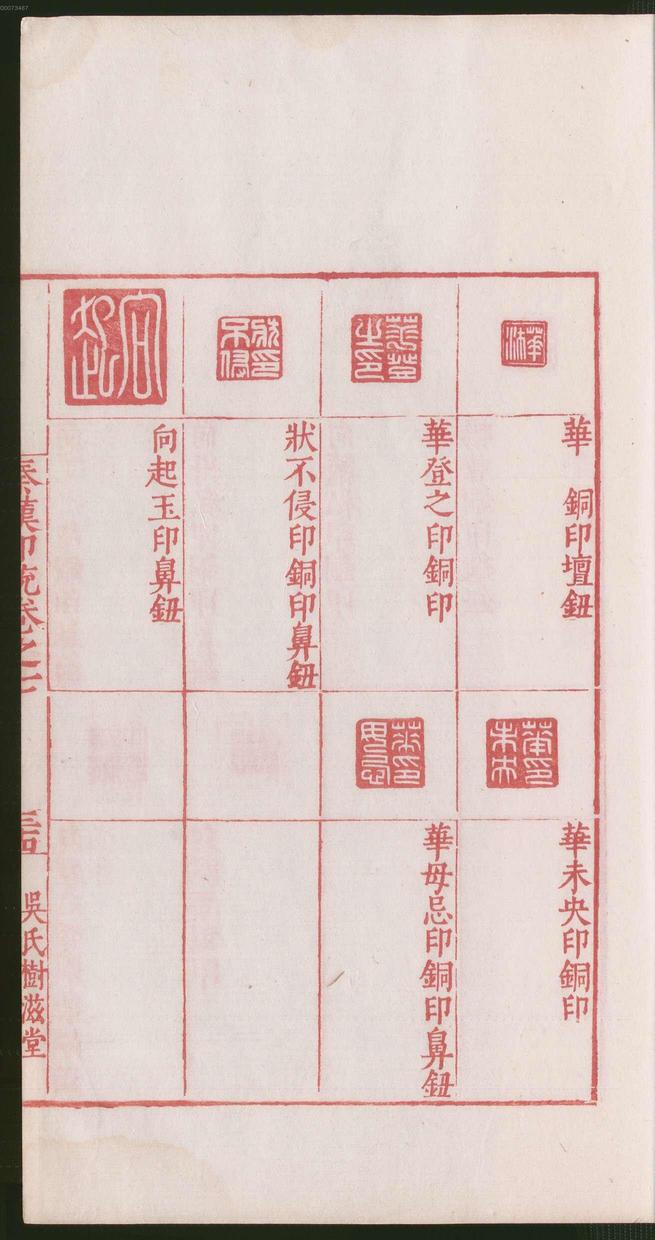 00073467
華　銅印壇鈕
華登之印銅印
狀不侵印銅印鼻鈕
向起玉印鼻鈕
華未央印銅印
華毋忌印銅印鼻鈕
秦漢印統卷之七
吳氏樹滋堂